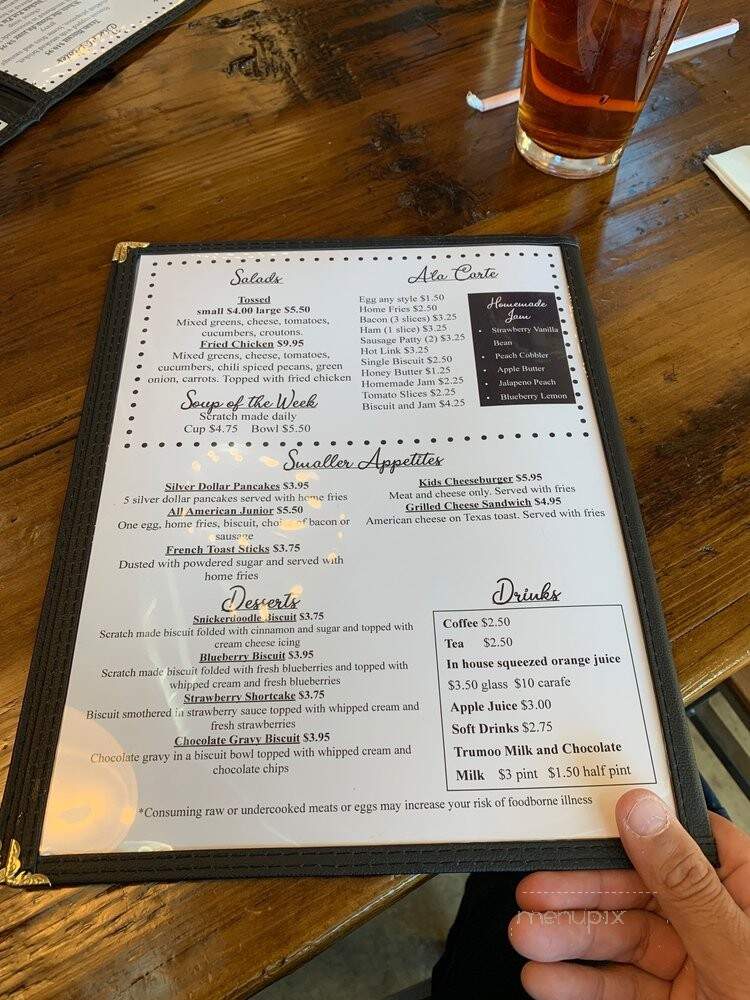 Salads
Tossed
small $4.00 large $5.50
Mixed greens, cheese, tomatoes,
cucumbers, croutons.
Fried Chicken $9.95
Mixed greens, cheese, tomatoes,
cucumbers, chili spiced pecans, green
onion, carrots. Topped with fried chicken
Soup of the Week
Scratch made daily
Cup $4.75 Bowl $5.50
Ala Carte
Egg any style $1.50
Home Fries $2.50
Bacon (3 slices) $3.25
Ham (1 slice) $3.25
Sausage Patty (2) $3.25
Hot Link $3.25
Single Biscuit $2.50
Honey Butter $1.25
Homemade Jam $2.25
Tomato Slices $2.25
Biscuit and Jam $4.25
Homemade
Jam
• Strawberry Vanilla
Bean
• Peach Cobbler
• Apple Butter
• Jalapeno Peach
• Blueberry Lemon
Smaller Appetites
Silver Dollar Pancakes $3.95
5 silver dollar pancakes served with home fries
All American Junior $5.50
One egg, home fries, biscuit, choice of bacon or
sausage
French Toast Sticks $3.75
Dusted with powdered sugar and served with
home fries
Kids Cheeseburger $5.95
Meat and cheese only. Served with fries
Grilled Cheese Sandwich $4.95
American cheese on Texas toast. Served with fries
Desserts
Snickerdoodle Biscuit $3.75
Scratch made biscuit folded with cinnamon and sugar and topped with
cream cheese icing
Blueberry Biscuit $3.95
Scratch made biscuit folded with fresh blueberries and topped with
whipped cream and fresh blueberries
Strawberry Shortcake $3.75
Biscuit smothered in strawberry sauce topped with whipped cream and
fresh strawberries
Chocolate Gravy Biscuit $3.95
Chocolate gravy in a biscuit bowl topped with whipped cream and
chocolate chips
Drinks
Coffee $2.50
Tea $2.50
In house squeezed orange juice
$3.50 glass $10 carafe
Apple Juice $3.00
Soft Drinks $2.75
Trumoo Milk and Chocolate
Milk $3 pint $1.50 half pint
*Consuming raw or undercooked meats or eggs may increase your risk of foodborne illness
menupix